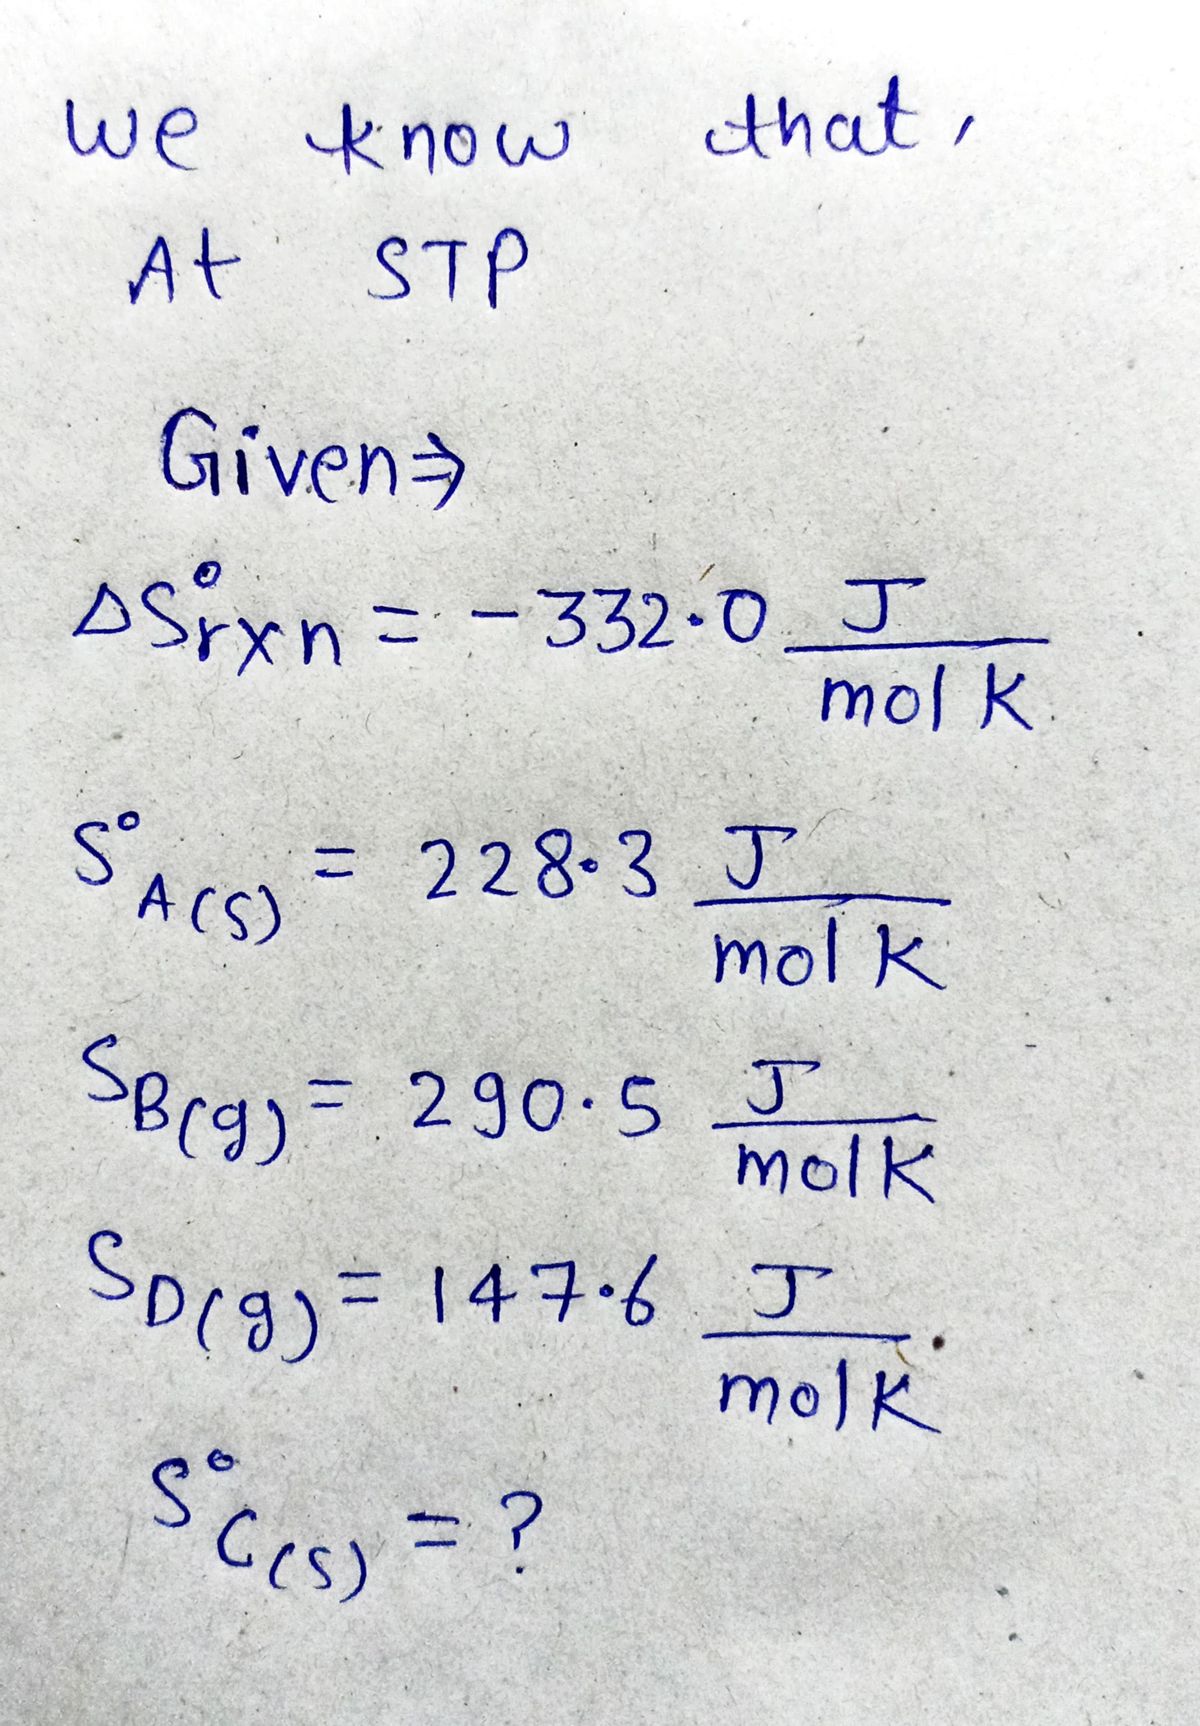 we know that,
At STP
Given⇒
ΔS°rxn = -332.0 J/mol K
S°A(s) = 228.3 J/mol K
SB(g) = 290.5 J/mol K
SD(g) = 147.6 J/mol K
S°C(s) = ?